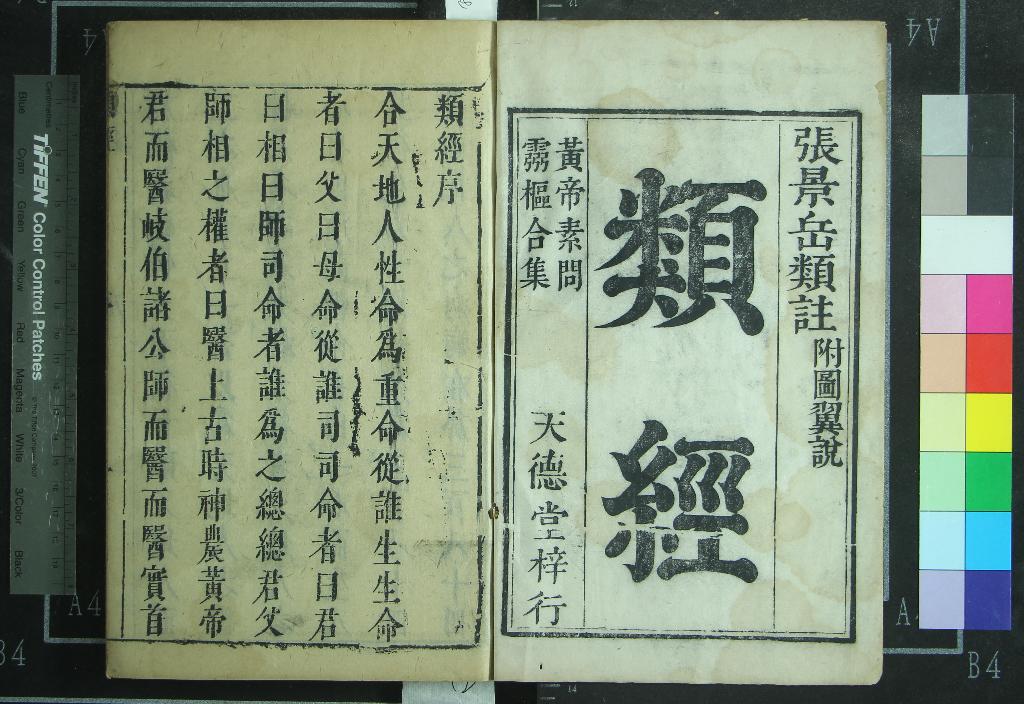 張景岳類註 附圖翼說
類經
黃帝素問
靈樞合集
天德堂梓行
類經序
合天地人性命為重命從誰生生命
者曰父曰母命從誰司司命者曰君
曰相曰師司命者誰為之總總君父
師相之權者曰醫上古時神農黃帝
君而醫岐伯諸公師而醫而醫實首
TIFFEN Color Control Patches
Blue Cyan Green Yellow Red Magenta White 3/Color Black
Centimetres
A4
A4
A4
A
B4
B4